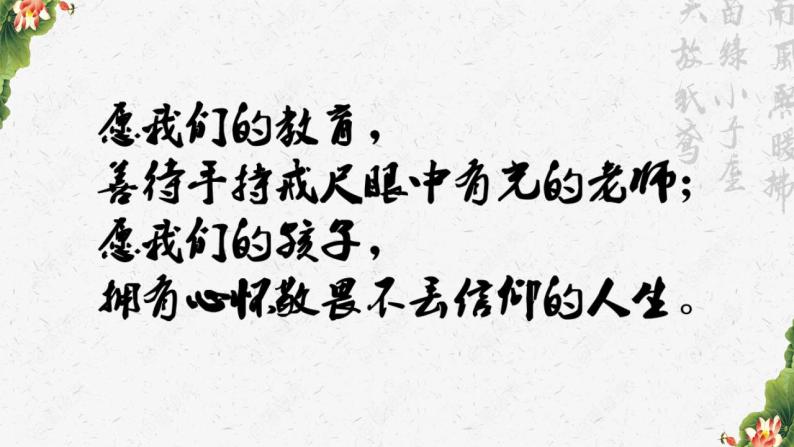 愿我们的教育，
善待手持戒尺眼中有光的老师；
愿我们的孩子，
拥有心怀敬畏不丢信仰的人生。
南風熙暖拂
苗緑小子座
天放紙鸢